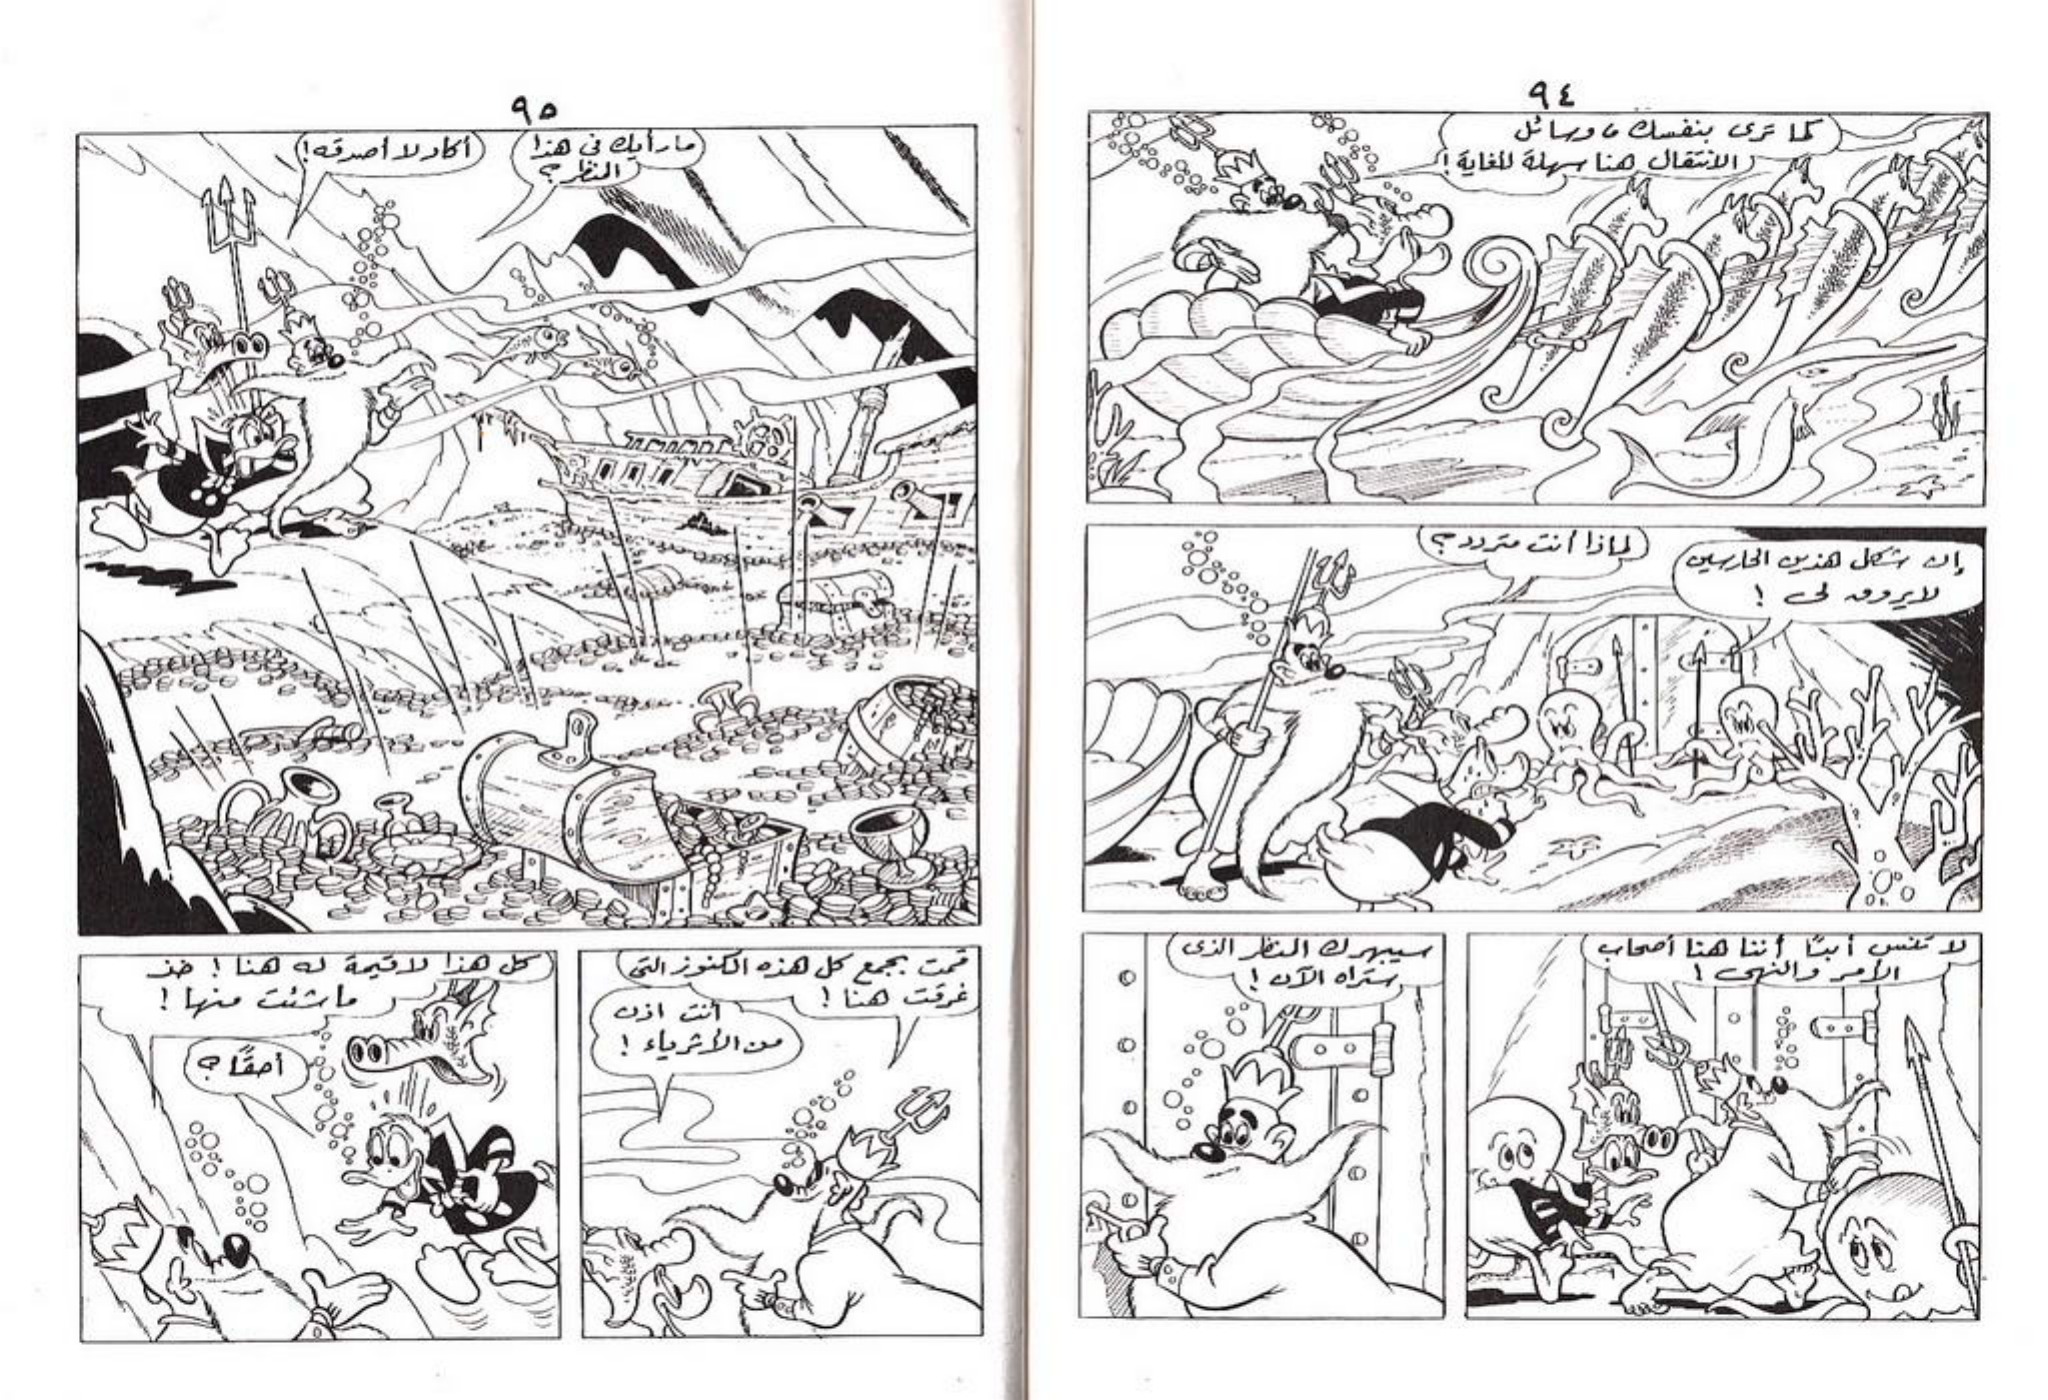 ٩٤
كما ترى بنفسك، وسائل
الانتقال هنا سهلة للغاية!
إن شكل هذين الحارسين
لا يروق لى!
لماذا أنت متردد؟
لا تنس أبدًا أننا هنا أصحاب
الأمر والنهى!
سيبهرك المنظر الذى
ستراه الآن!
٩٥
ما رأيك فى هذا
المنظر؟
أكاد لا أصدقه!
قمت بجمع كل هذه الكنوز التى
غرقت هنا!
أنت اذن
من الأثرياء!
كل هذا لا قيمة له هنا! خذ
ما شئت منها!
أحقًا؟